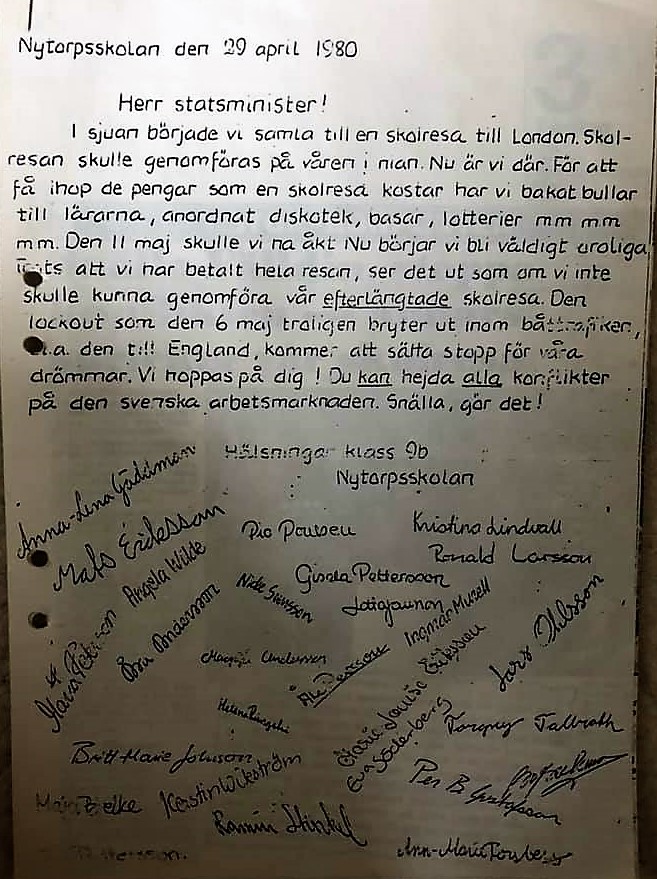 Nytorpsskolan den 29 april 1980
Herr statsminister!
I sjuan började vi samla till en skolresa till London. Skol-
resan skulle genomföras på våren i nian. Nu är vi där. För att
få ihop de pengar som en skolresa kostar har vi bakat bullar
till lärarna, anordnat diskotek, basar, lotterier mm mm
mm. Den 11 maj skulle vi ha åkt Nu börjar vi bli väldigt oroliga
att vi har betalt hela resan, ser det ut som om vi inte
skulle kunna genomföra vår efterlängtade skolresa. Den
lockout som den 6 maj troligen bryter ut inom båttrafiken,
bl.a. den till England, kommer att sätta stopp för våra
drömmar. Vi hoppas på dig! Du kan hejda alla konflikter
på den svenska arbetsmarknaden. Snälla, gör det!
Hälsningar klass 9b
Nytorpsskolan
Anna-Lena Gäddman
Mats Eriksson
Pia Poulsen
Kristina Lindvall
Ronald Larsson
Angela Wilde
Gisela Pettersson
Svensson
Ingmar
Maria
Åsa Andersson
Andersson
Lars Ohlsson
Marie-Louise Eriksson
Helena
Eva Söderberg
Talbrath
Britt-Marie Johnson
Per B Gustafsson
Kerstin Wikström
Ann-Marie Forsberg